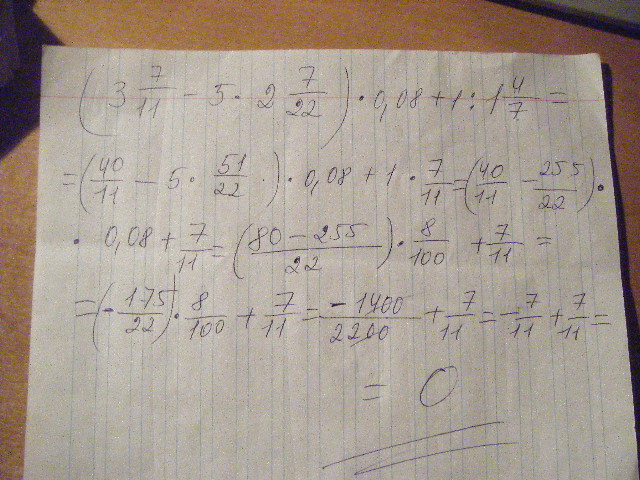 (3 7/11 - 5 · 2 7/22) · 0,08 + 1 : 1 4/7 =
= (40/11 - 5 · 51/22) · 0,08 + 1 · 7/11 = (40/11 - 255/22) ·
· 0,08 + 7/11 = ((80 - 255)/22) · 8/100 + 7/11 =
= (-175/22) · 8/100 + 7/11 = -1400/2200 + 7/11 = -7/11 + 7/11 =
= 0